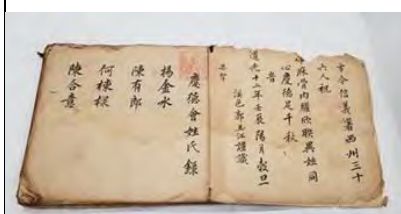 市合信義署西州三十
六人祝
骨肉權欣聯異姓同
心慶德足千秋
道光十二年壬辰陽月穀旦
邑郭玉江謹識
慶德會姓氏錄
楊金水
陳有郎
何棟樑
陳合意